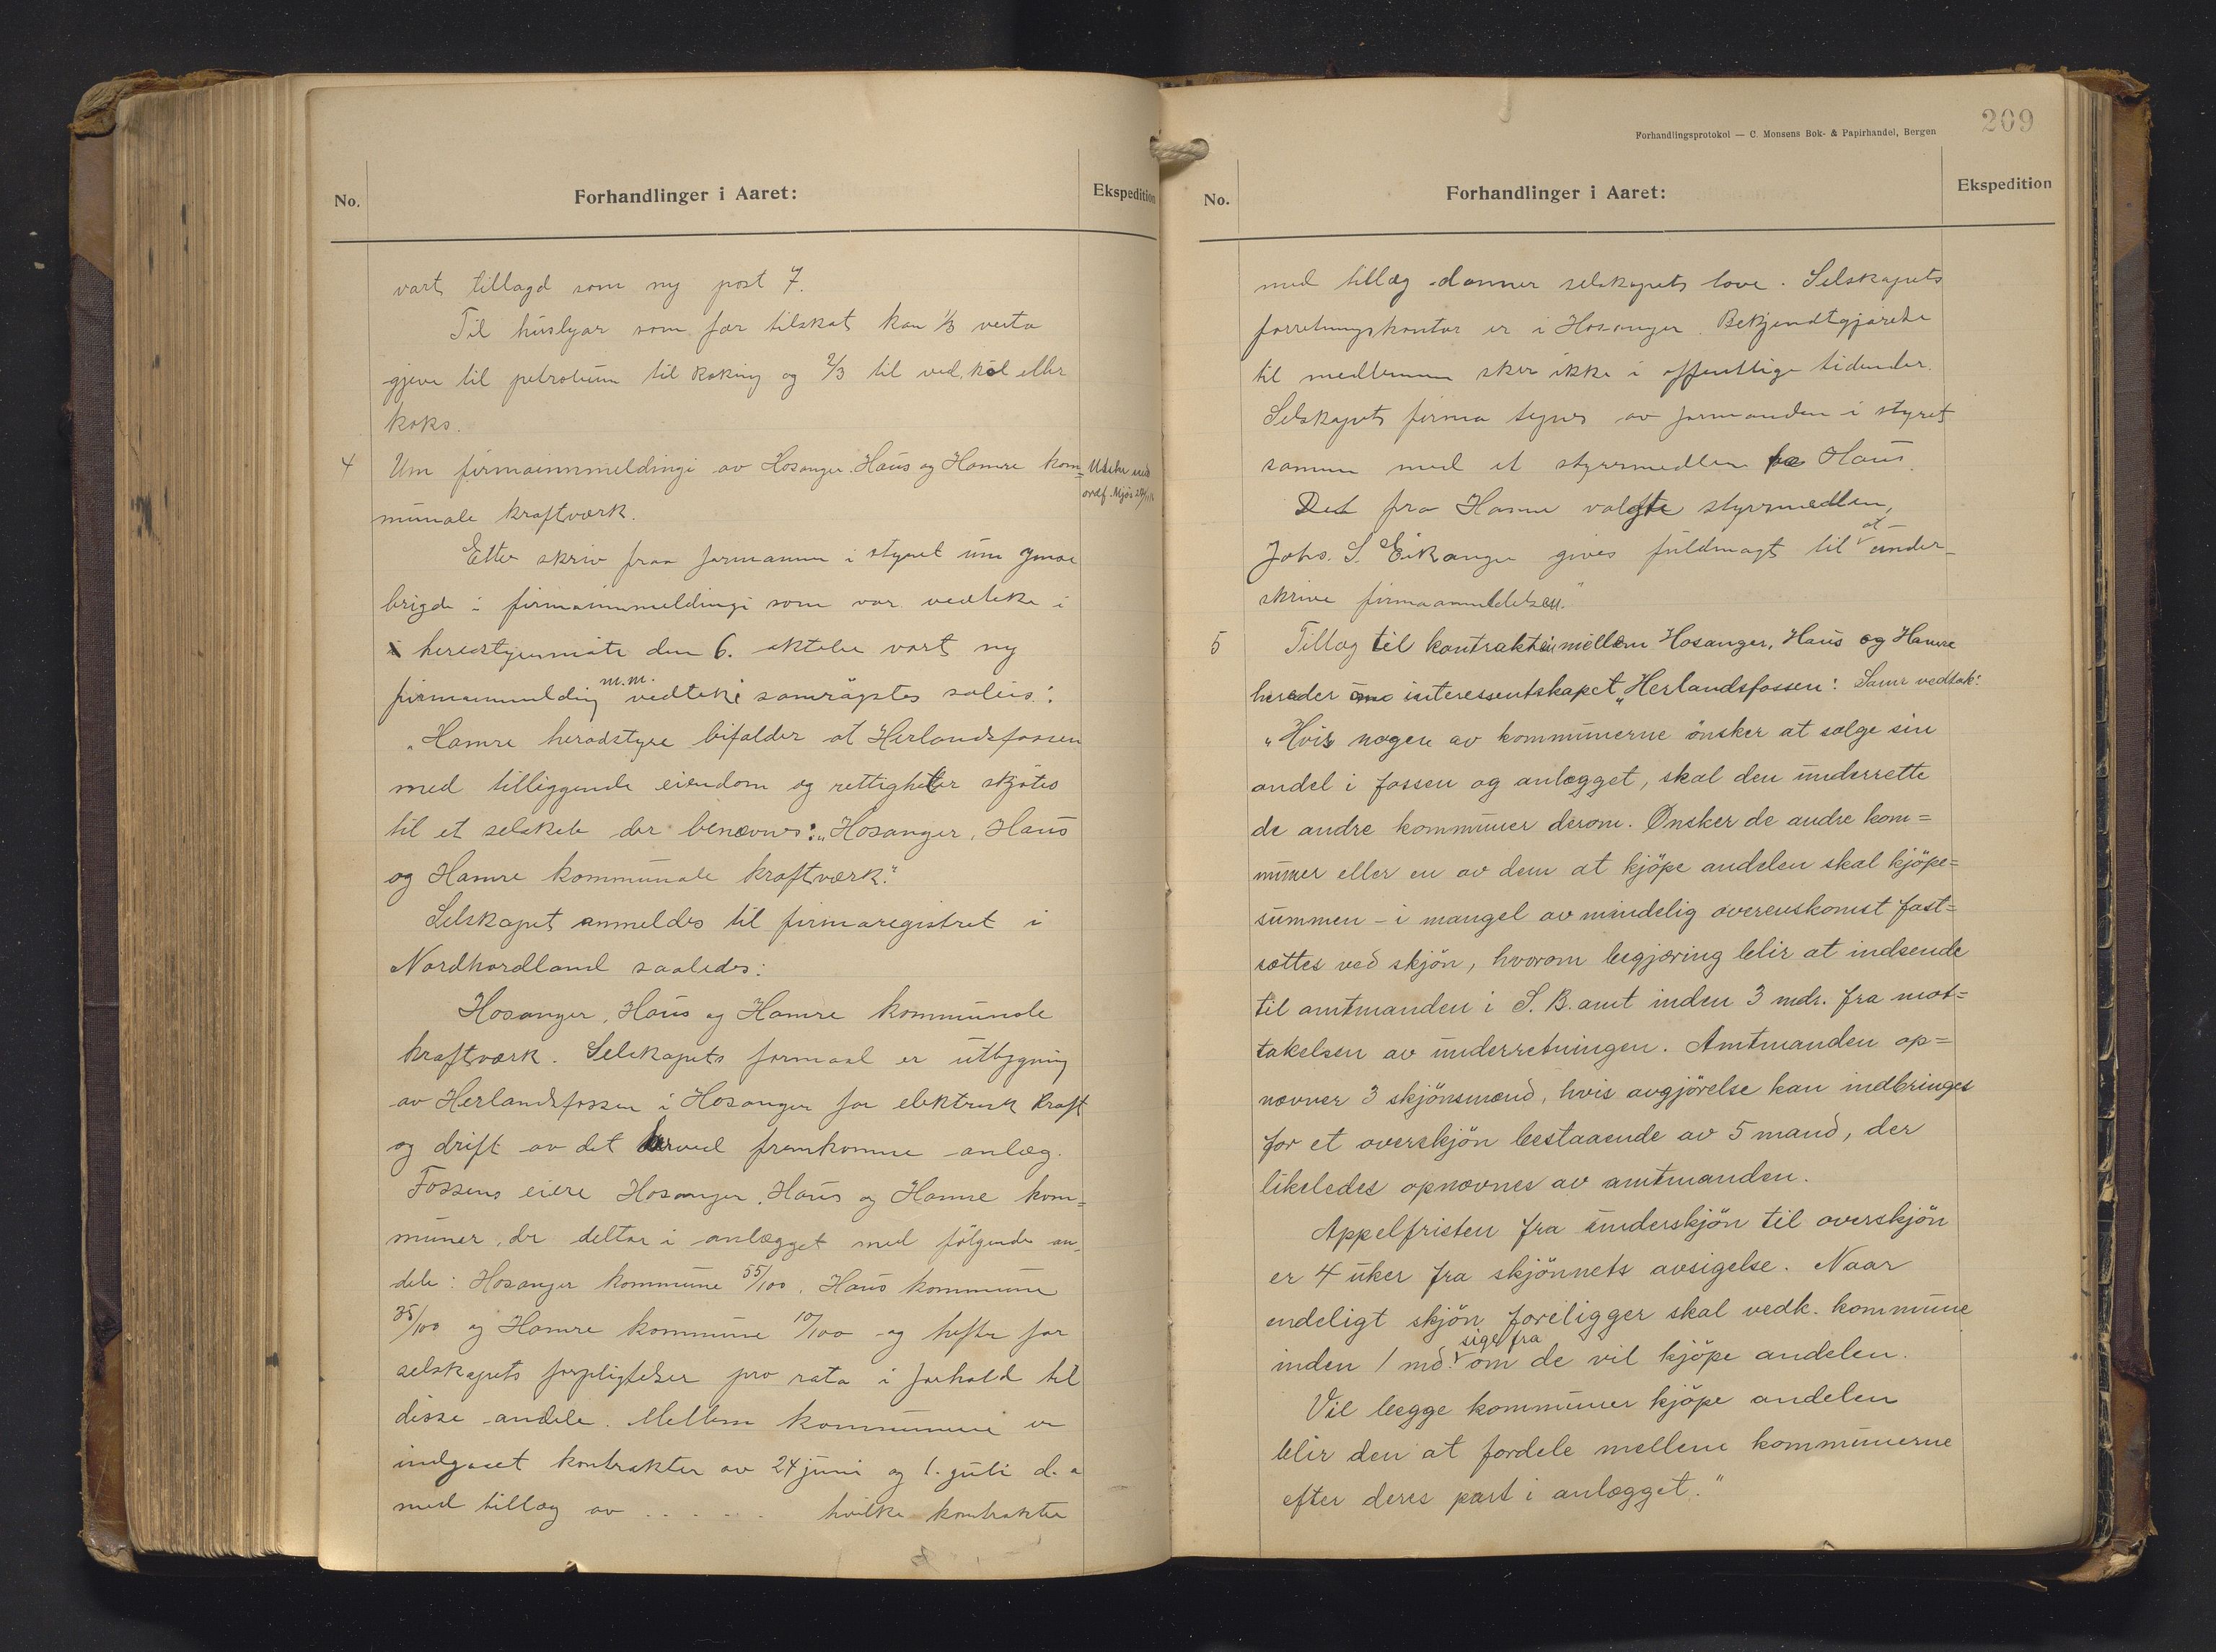 No.
Forhandlinger i Aaret:
Ekspedition
vart tillagd som ny post 7.
Til huslyar som fær tilskot kan 1/3 verta
gjeve til petroleum til koking og 2/3 til ved, kol eller
koks.
4 Um firmainnmeldingi av Hosanger, Haus og Hamre kom=
munale kraftværk.
Etter skriv fraa formannen i styret um ymse
brigde i firmainnmeldingi som var vedteke i
i heradstyremøte den 6. oktober vart ny
firmainnmelding m.m. vedteki samrøystes soleis:
„Hamre heradstyre bifalder at Herlandsfossen
med tilliggende eiendom og rettigheter skjøtes
til et selskab der benævnes: „Hosanger, Haus
og Hamre kommunale kraftværk."
Selskapet anmeldes til firmaregistret i
Nordhordland saaledes:
Hosanger, Haus og Hamre kommunale
kraftværk. Selskapets formaal er utbygning
av Herlandsfossen i Hosanger for elektrisk kraft
og drift av det herved fremkomne anlæg.
Fossens eiere Hosanger, Haus og Hamre kom=
muner, der deltar i anlægget med følgende an-
dele: Hosanger kommune 55/100, Haus kommune
35/100 og Hamre kommune 10/100 og hefter for
selskapets forpligtelser pro rata i forhold til
disse andele. Mellem kommunene er
indgaaet kontrakter av 24 juni og 1. juli d. a
med tillæg av . . . . . . hvilke kontrakter
209
Forhandlingsprotokol — C. Monsens Bok- & Papirhandel, Bergen
No.
Forhandlinger i Aaret:
Ekspedition
med tillæg danner selskapets love. Selskapets
forretningskontor er i Hosanger. Bekjendtgjørelse
til medlemmer sker ikke i offentlige tidender.
Selskapets firma tegnes av formanden i styret
sammen med et styresmedlem fra Haus.
Det fra Hamre valgte styresmedlem,
Johs. S. Eikanger gives fuldmagt til at under-
skrive firmaanmeldelsen."
5 Tillæg til kontrakten mellem Hosanger, Haus og Hamre
herader um interessentskapet „Herlandsfossen: Samr vedtak:
„Hvis nogen av kommunerne ønsker at sælge sin
andel i fossen og anlægget, skal den underrette
de andre kommuner derom. Ønsker de andre kom=
muner eller en av dem at kjöpe andelen skal kjöpe=
summen - i mangel av mindelig overenskomst fast=
sættes ved skjön, hvorom begjæring blir at indsende
til amtmanden i S. B. amt inden 3 mdr. fra mot=
takelsen av underretningen. Amtmanden op=
nævner 3 skjönsmænd, hvis avgjörelse kan indbringes
for et overskjön bestaaende av 5 mænd, der
likeledes opnævnes av amtmanden.
Appelfristen fra underskjön til overskjön
er 4 uker fra skjönnets avsigelse. Naar
endeligt skjön foreligger skal vedk. kommune
inden 1 md. sige fra om de vil kjöpe andelen.
Vil begge kommuner kjöpe andelen
blir den at fordele mellem kommunerne
efter deres part i anlægget."